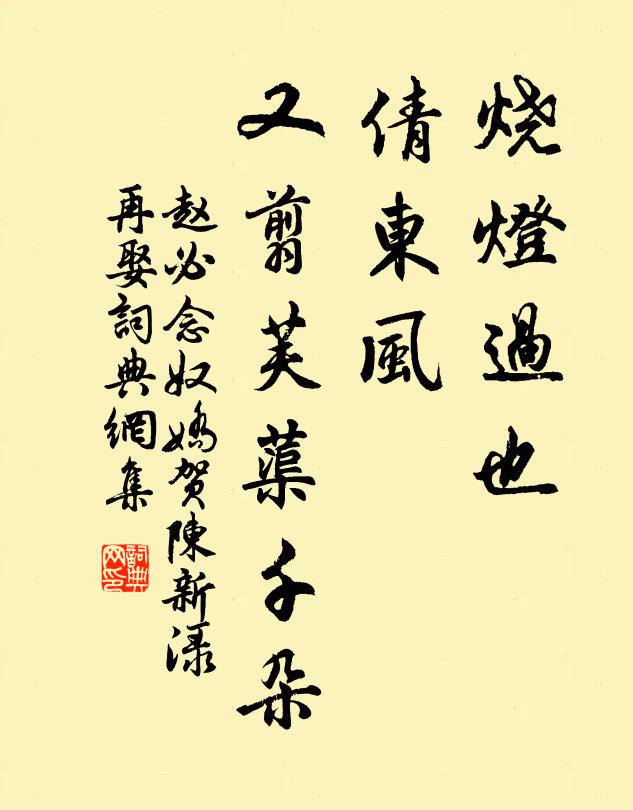 烧燈過也
倩東風
又翦芙蕖千朵
赵必念奴嬌贺陳新渌
再娶詞典網集
詞典
网印